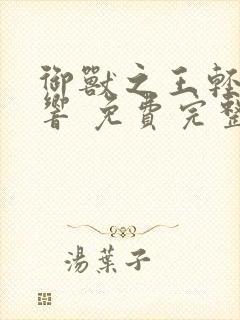 御獸之王輕
響 免費完整
湯葉子